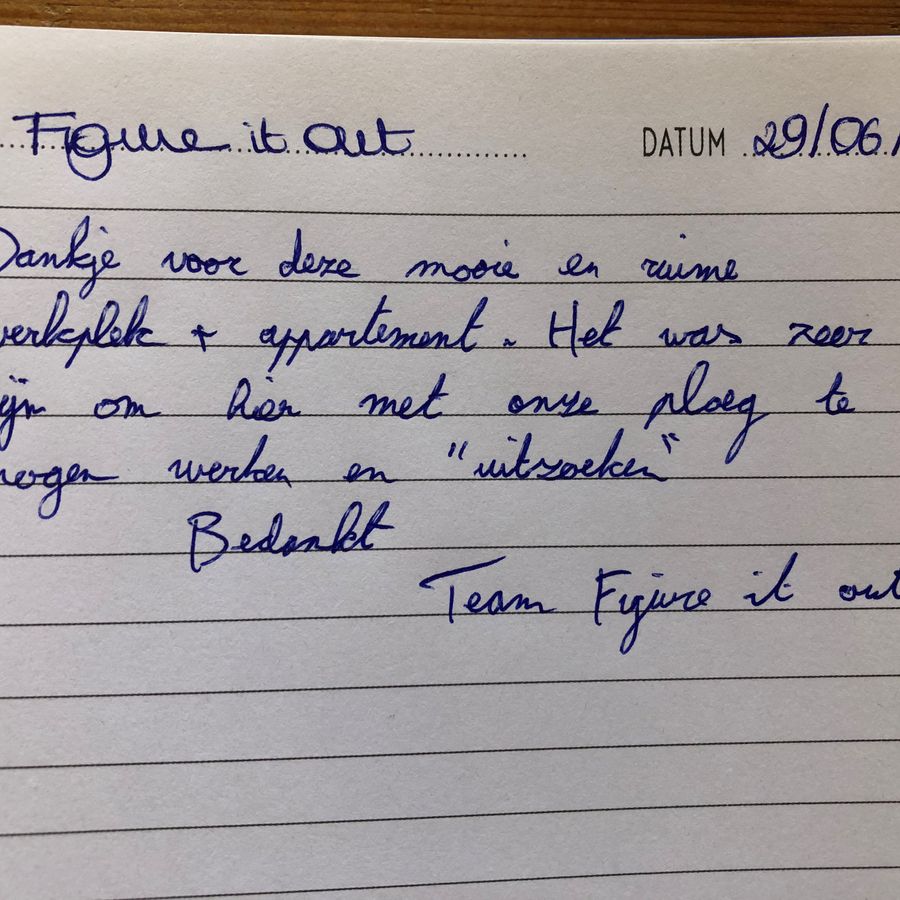 Figure it Out DATUM 29/06/
Dankje voor deze mooie en ruime
werkplek + appartement. Het was zeer
fijn om hier met onze ploeg te
mogen werken en "uitzoeken"
Bedankt
Team Figure it out